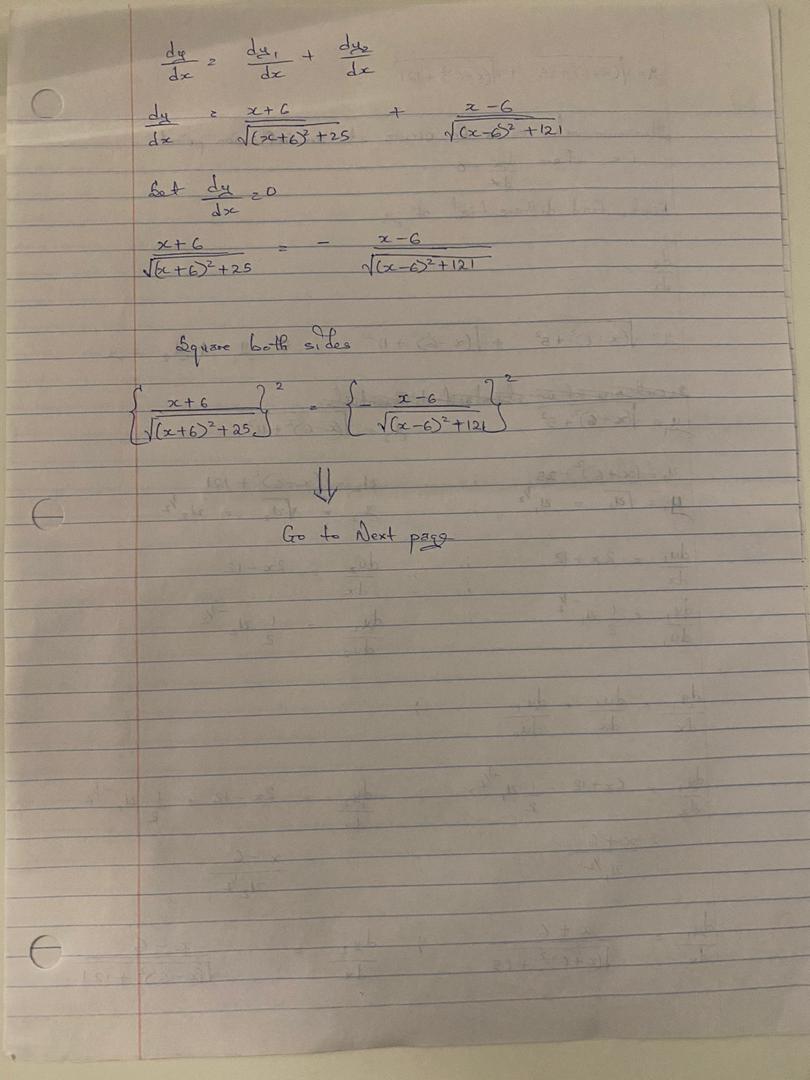 dy/dx = dy₁/dx + dy₂/dx
dy/dx = (x+6)/√((x+6)²+25) + (x-6)/√((x-6)²+121)
Set dy/dx = 0
(x+6)/√((x+6)²+25) = - (x-6)/√((x-6)²+121)
Square both sides
{(x+6)/√((x+6)²+25)}² = {- (x-6)/√((x-6)²+121)}²
⇓
Go to Next page